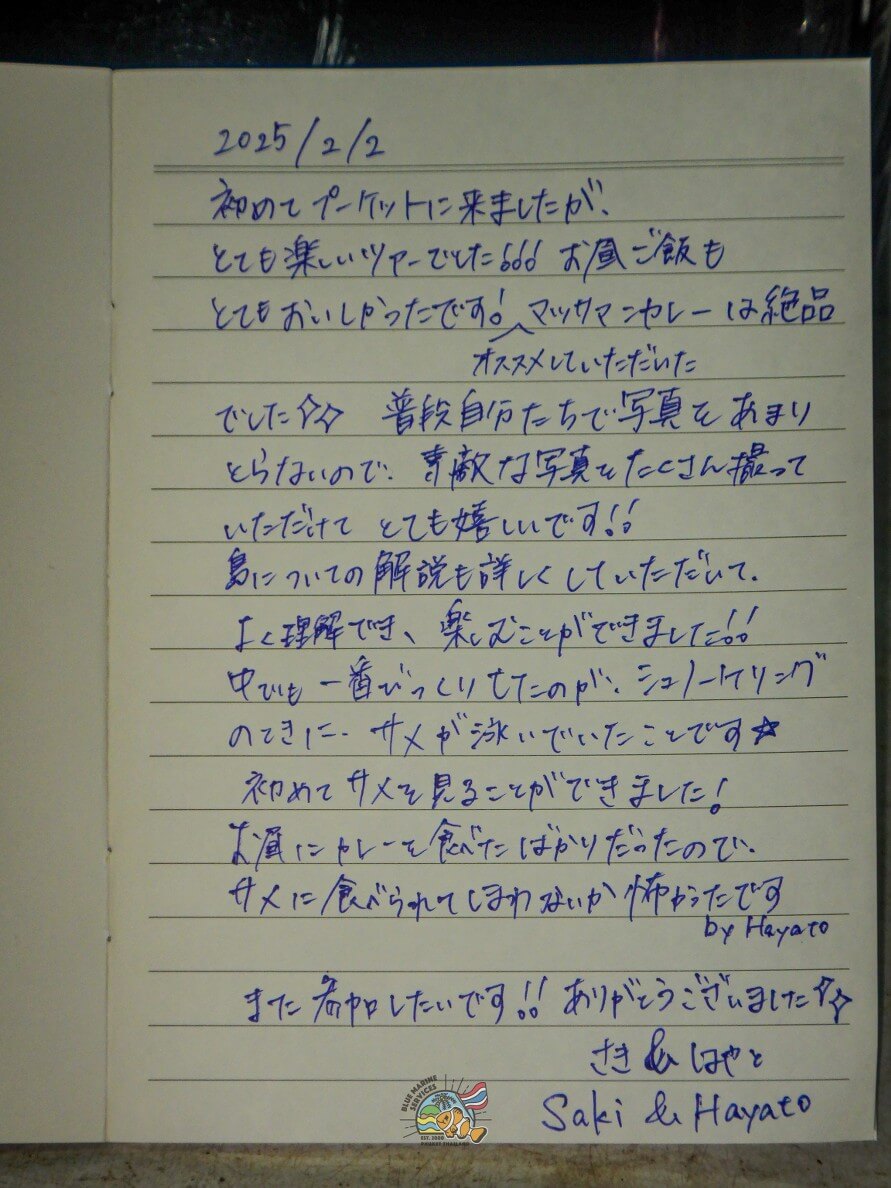 2025/2/2
初めてプーケットに来ましたが、
とても楽しいツアーでした!!! お昼ご飯も
とてもおいしかったです! マッサマンカレーは絶品
オススメしていただいた
でした✧✧ 普段自分たちで写真をあまり
とらないので、素敵な写真をたくさん撮って
いただけてとても嬉しいです!!
島についての解説も詳しくしていただいて、
よく理解でき、楽しむことができました!!
中でも一番びっくりしたのが、シュノーケリング
のときに、サメが泳いでいたことです☆
初めてサメを見ることができました!
お昼にカレーを食べたばかりだったので、
サメに食べられてしまわないか怖かったです
by Hayato
また参加したいです!! ありがとうございました✧✧
さき & はやと
Saki & Hayato
BLUE MARINE SERVICES
EST. 2009
PHUKET THAILAND